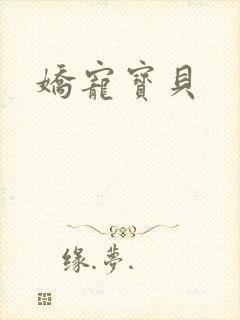 嬌寵寶貝
缘.夢.